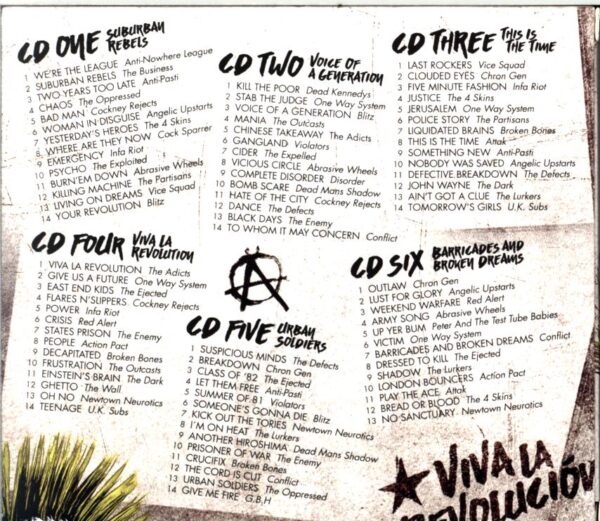 CD ONE SUBURBAN
REBELS
1 WE'RE THE LEAGUE Anti-Nowhere League
2 SUBURBAN REBELS The Business
3 TWO YEARS TOO LATE Anti-Pasti
4 CHAOS The Oppressed
5 BAD MAN Cockney Rejects
6 WOMAN IN DISGUISE Angelic Upstarts
7 YESTERDAY'S HEROES The 4 Skins
8 WHERE ARE THEY NOW Cock Sparrer
9 EMERGENCY Infa Riot
10 PSYCHO The Exploited
11 BURN'EM DOWN Abrasive Wheels
12 KILLING MACHINE The Partisans
13 LIVING ON DREAMS Vice Squad
14 YOUR REVOLUTION Blitz
CD TWO VOICE OF
A GENERATION
1 KILL THE POOR Dead Kennedys
2 STAB THE JUDGE One Way System
3 VOICE OF A GENERATION Blitz
4 MANIA The Outcasts
5 CHINESE TAKEAWAY The Adicts
6 GANGLAND Violators
7 CIDER The Expelled
8 VICIOUS CIRCLE Abrasive Wheels
9 COMPLETE DISORDER Disorder
10 BOMB SCARE Dead Mans Shadow
11 HATE OF THE CITY Cockney Rejects
12 DANCE The Defects
13 BLACK DAYS The Enemy
14 TO WHOM IT MAY CONCERN Conflict
CD THREE THIS IS
THE TIME
1 LAST ROCKERS Vice Squad
2 CLOUDED EYES Chron Gen
3 FIVE MINUTE FASHION Infa Riot
4 JUSTICE The 4 Skins
5 JERUSALEM One Way System
6 POLICE STORY The Partisans
7 LIQUIDATED BRAINS Broken Bones
8 THIS IS THE TIME Attak
9 SOMETHING NEW Anti-Pasti
10 NOBODY WAS SAVED Angelic Upstarts
11 DEFECTIVE BREAKDOWN The Defects
12 JOHN WAYNE The Dark
13 AIN'T GOT A CLUE The Lurkers
14 TOMORROW'S GIRLS U.K. Subs
CD FOUR VIVA LA
REVOLUTION
1 VIVA LA REVOLUTION The Adicts
2 GIVE US A FUTURE One Way System
3 EAST END KIDS The Ejected
4 FLARES N'SLIPPERS Cockney Rejects
5 POWER Infa Riot
6 CRISIS Red Alert
7 STATES PRISON The Enemy
8 PEOPLE Action Pact
9 DECAPITATED Broken Bones
10 FRUSTRATION The Outcasts
11 EINSTEIN'S BRAIN The Dark
12 GHETTO The Wall
13 OH NO Newtown Neurotics
14 TEENAGE U.K. Subs
CD FIVE URBAN
SOLDIERS
1 SUSPICIOUS MINDS The Defects
2 BREAKDOWN Chron Gen
3 CLASS OF '82 The Ejected
4 LET THEM FREE Anti-Pasti
5 SUMMER OF 81 Violators
6 SOMEONE'S GONNA DIE Blitz
7 KICK OUT THE TORIES Newtown Neurotics
8 I'M ON HEAT The Lurkers
9 ANOTHER HIROSHIMA Dead Mans Shadow
10 PRISONER OF WAR The Enemy
11 CRUCIFIX Broken Bones
12 THE CORD IS CUT Conflict
13 URBAN SOLDIERS The Oppressed
14 GIVE ME FIRE G.B.H
CD SIX BARRICADES AND
BROKEN DREAMS
1 OUTLAW Chron Gen
2 LUST FOR GLORY Angelic Upstarts
3 WEEKEND WARFARE Red Alert
4 ARMY SONG Abrasive Wheels
5 UP YER BUM Peter And The Test Tube Babies
6 VICTIM One Way System
7 BARRICADES AND BROKEN DREAMS Conflict
8 DRESSED TO KILL The Ejected
9 SHADOW The Lurkers
10 LONDON BOUNCERS Action Pact
11 PLAY THE ACE Attak
12 BREAD OR BLOOD The 4 Skins
13 NO SANCTUARY Newtown Neurotics
VIVA LA
REVOLUCIÓN